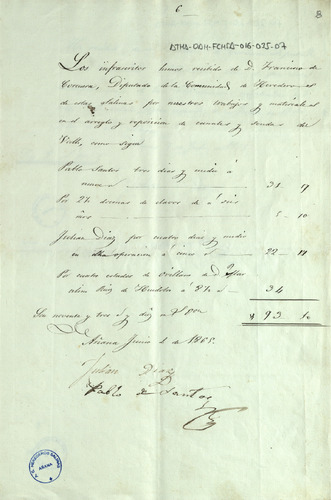 6
8
ATHA-DAH-FCHSA-016-025-07
Los infrascritos hemos recibido de D. Francisco de
Corcuera, Diputado de la Comunidad de Herederos
de estas Salinas por nuestros trabajos y materiales
en el arreglo y reposicion de canales y sendas de
Valle, como sigue
Pablo Santos tres dias y medio á
nueve 31 17
Por 2½ docenas de clavos de á seis
5 10
Julian Diaz por cuatro dias y medio
en operacion á cinco 22 17
Por cuatro estados de de D.
Ruiz de á 8½ 34
Son noventa y tres y diez
93 10
Añana Junio 1 de 1865.
Julian Diaz
Pablo de Santos
HEREDEROS SALINAS
AÑANA